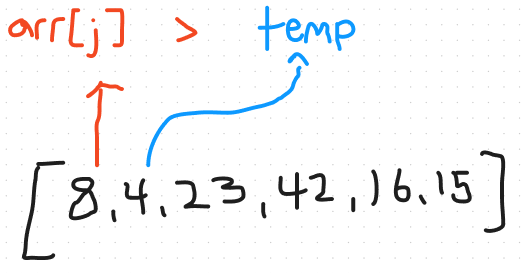 arr[j] > temp
[8,4,23,42,16,15]